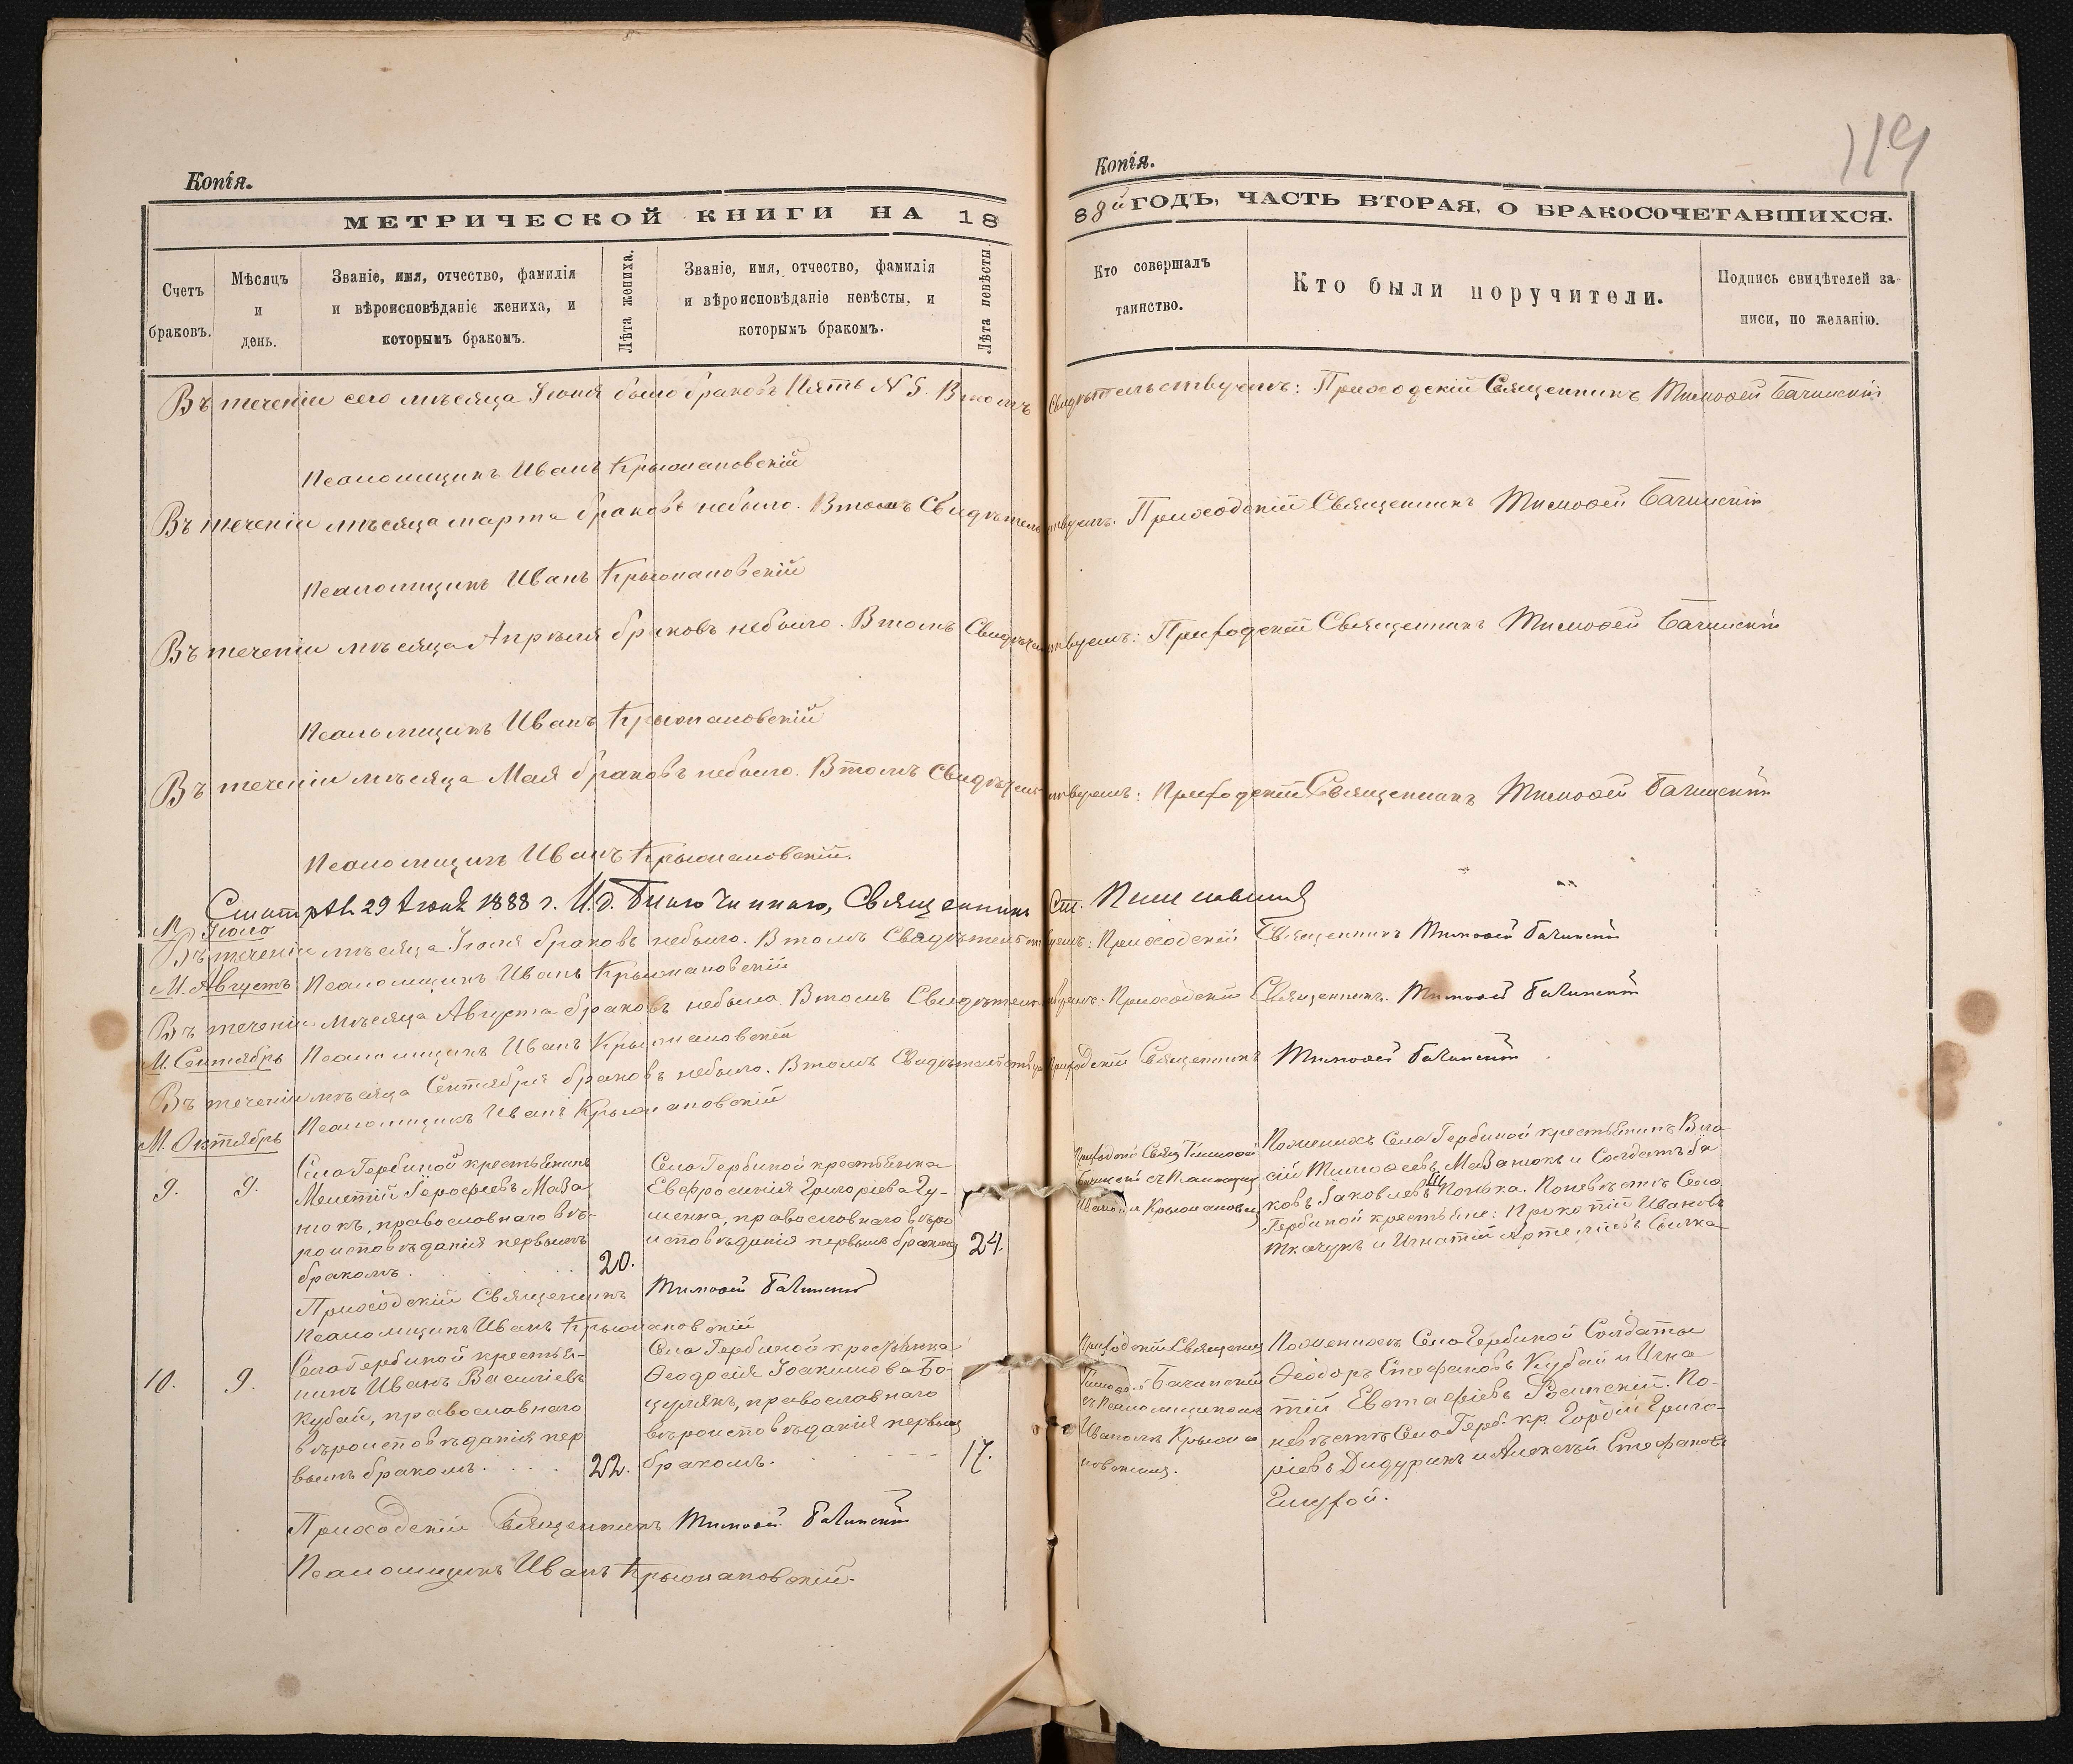 Копія.
МЕТРИЧЕСКОЙ КНИГИ НА 18
Счетъ
браковъ.
Мѣсяцъ
и
день.
Званіе, имя, отчество, фамилія
и вѣроисповѣданіе жениха, и
которымъ бракомъ.
Лѣта жениха.
Званіе, имя, отчество, фамилія
и вѣроисповѣданіе невѣсты, и
которымъ бракомъ.
Лѣта невѣсты.
Копія.
119
88й ГОДЪ, ЧАСТЬ ВТОРАЯ, О БРАКОСОЧЕТАВШИХСЯ.
Кто совершалъ
таинство.
Кто были поручители.
Подпись свидѣтелей за-
писи, по желанію.
Въ теченіи сего мѣсяца Іюня было браковъ Пять N 5. Втомъ Свидѣтельствуемъ: Приходскій Священникъ Тимоѳей Бачинскій
Псаломщикъ Иванъ Крыжановскій
Въ теченіи мѣсяца марта браковъ небыло. Втомъ Свидѣтельствуемъ. Приходскій Священникъ Тимоѳей Бачинскій
Псаломщикъ Иванъ Крыжановскій
Въ теченіи мѣсяца Апрѣля браковъ небыло. Втомъ Свидѣтельствуемъ: Приходскій Священникъ Тимоѳей Бачинскій
Псаломщикъ Иванъ Крыжановскій
Въ теченіи мѣсяца Мая браковъ небыло. Втомъ Свидѣтельствуемъ: Приходскій Священникъ Тимоѳей Бачинскій
Псаломщикъ Иванъ Крыжановскій.
29 Іюня 1888 г. И. д. Благочиннаго, Священникъ Ст.
М. Іюль
Въ теченіи мѣсяца Іюля браковъ небыло. Втомъ Свидѣтельствуемъ: Приходскій Священникъ Тимоѳей Бачинскій
М. Августъ Псаломщикъ Иванъ Крыжановскій
Въ теченіи мѣсяца Августа браковъ небыло. Втомъ Свидѣтельствуемъ. Приходскій Священникъ. Тимоѳей Бачинскій
М. Сентябрь Псаломщикъ Иванъ Крыжановскій
Въ теченіи мѣсяца Сентября браковъ небыло. Втомъ Свидѣтельствуемъ Приходскій Священникъ Тимоѳей Бачинскій
Псаломщикъ Иванъ Крыжановскій
М. Октябрь
9. 9.
Села Гербиной крестьянинъ
Мелетій Іероѳеевъ Маза
нюкъ, православнаго вѣ-
роисповѣданія первымъ
бракомъ. 20.
Села Гербиной крестьянка
Евфросинія Григоріева Гу-
менна, православнаго вѣро
исповѣданія первымъ бракомъ 24.
Приходскій Свящ. Тимоѳей
Бачинскій съ Псаломщик
Иваномъ Крыжановск
Поженихѣ Села Гербиной крестьянинъ Вла
сій Тимоѳеевъ Мазанюкъ и Солдатъ Іа
ковъ Іаковлевъ Понька. Поневѣстѣ Села
Гербиной крестьяне: Прокопій Ивановъ
Ткачукъ и Игнатій Артеміевъ Свилка
Приходскій Священникъ Тимоѳей Бачинскій
Псаломщикъ Иванъ Крыжановскій
10. 9.
Села Гербиной крестья-
нинъ Иванъ Василіевъ
Кубай, православнаго
вѣроисповѣданія пер
вымъ бракомъ. 22.
Села Гербиной крестьянка
Ѳеодосія Іоакимова Бо-
цулякъ, православнаго
вѣроисповѣданія первымъ
бракомъ. 17.
Приходскій Священник
Тимоѳей Бачинскій
съ Псаломщикомъ
Иваномъ Крыжа
новскимъ.
Поженихѣ Села Гербиной Солдаты
Ѳеодоръ Стефановъ Кубай и Игна
тій Евстафіевъ Росинскій. По-
невѣстѣ Села Герб. кр. Гордій Григо-
ріевъ Дидурикъ и Алексѣй Стефановъ
Глухой.
Приходскій Священникъ Тимоѳей Бачинскій
Псаломщикъ Иванъ Крыжановскій.